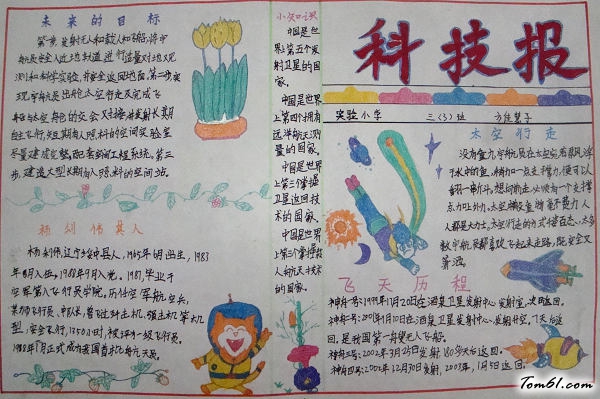 未来的目标
第一步,发射无人和载人知船,将宇
航员安全入近地轨道,进行适量对地观
测和科学实验,并安全返回地面。第二步,实
现宇航员出舱太空行走及完成飞
船与太空舱的交会对接,并发射长期
自主飞行,短期有人照料的空间实验室
尽量建成完整配套的工程系统。第三
步,建造大型长期有人照料的空间站。
杨利伟其人
杨利伟,辽宁绥中县人,1965年6月出生,1983
年8月入伍。1988年9月入党。1987,毕业于
空军第八飞行员学院。历任空军航空兵
某师飞行员、中队长,曾驻过击机、强击机等机
型,安全飞行,1350小时,被评为一级飞行员。
1998年1月正式成为我国首批航天员。
小知识
中国是世
界上第五个发
射卫星的国
家。
中国是世界
上第四个拥有
远洋航天测
量的国家。
中国是世
界上第三个掌握
卫星返回技
术的国家
中国是世
界上第三个掌握载
人航天技术
的国家
科技报
实验小学 三(3)班 方佳慧子
太空行走
没有重力,宇航员在太空宛若乘风浮
于水中的鱼,稍加一点支撑力,便可以
翻一串斤斗。想向前走,必须有一个支撑
点力以外力。太空搬设备,毫不费力,人
人都是大力士。太空行走的方式千姿百态,大多
数宇航员都喜欢飞起来走路,既安全又
算潇。
飞天历程
神舟一号:1999年11月20日在酒泉卫星发射中心发射,次日返回。
神舟二号:2001年1月10日在酒泉卫星发射中心发射升空。7天后返
回,是我国第一艘无人飞船。
神舟三号:2002年3月25日发射180多天后返回。
神舟四号:2002年12月30日发射,2003年,1月5日返回。
Tom61.com